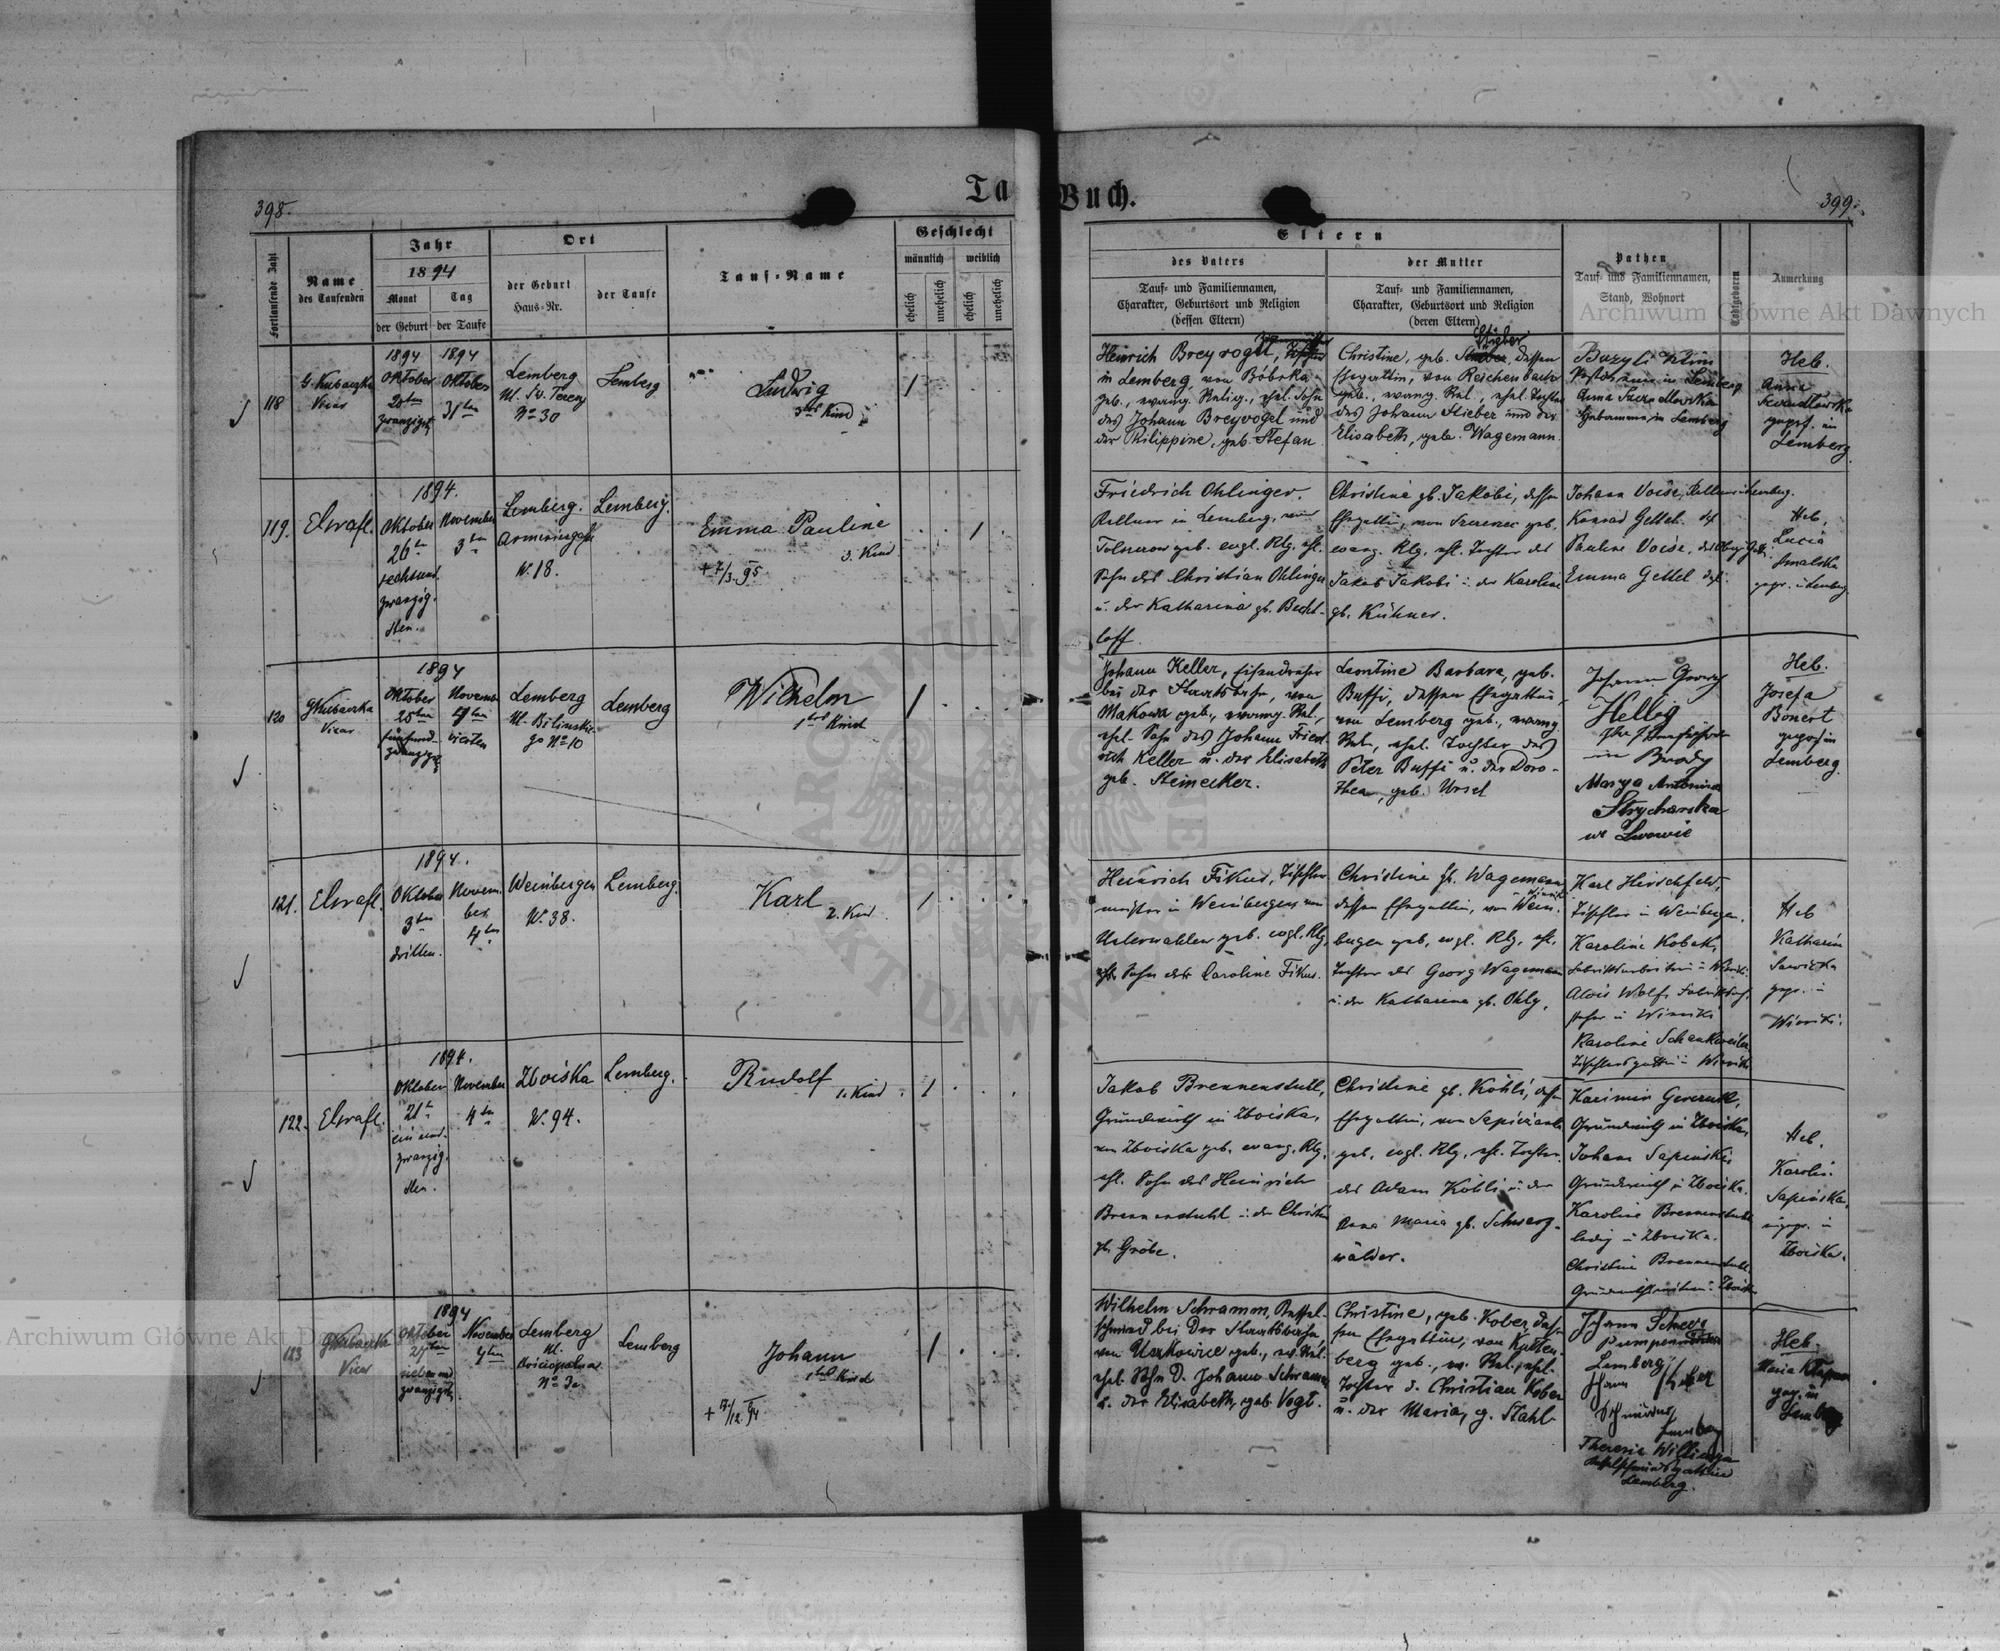 398.
Ta
Buch.
399.
Fortlaufende Zahl
Name
des Taufenden
Jahr
1894
Monat
Tag
der Geburt
der Taufe
Ort
der Geburt
Haus-Nr.
der Taufe
Tauf-Name
Geschlecht
männlich
weiblich
ehelich
unehelich
ehelich
unehelich
Eltern
des Vaters
Tauf- und Familiennamen,
Charakter, Geburtsort und Religion
(dessen Eltern)
der Mutter
Tauf- und Familiennamen,
Charakter, Geburtsort und Religion
(deren Eltern)
Pathen
Tauf- und Familiennamen,
Stand, Wohnort
Todtgeboren
Anmerkung
Archiwum Główne Akt Dawnych
118
G. Kubaczka
Vicar
1894
Oktober
1894
Oktober
31ten
Lemberg
Ul. Św. Teresy
No 30
Lemberg
Ludwig
3tes Kind
1
Heinrich Breyvogel,
in Lemberg, von Bóbrka
geb., evang. Relig., ehel. Sohn
des Johann Breyvogel und
der Philippine, geb. Stefan
Stieber
Christine, geb. dessen
Ehegattin, von Reichenbach
geb., evang. Rel., ehel. Tochter
des Johann Stieber und der
Elisabeth, geb. Wagemann.
in Lemberg
Anna Szandlowska
Hebamme in Lemberg
Heb.
Anna
Szandlowska
geprf. in
Lemberg.
119.
Elsrafl.
1894.
Oktober
26ten
sechsund
zwanzig-
sten.
November
3ten
Lemberg.
Armeniergasse
N. 18.
Lemberg.
Emma Pauline
3. Kind
+ 7/3. 95
1
Friedrich Ohlinger.
Kellner in Lemberg, von
geb. evgl. Rlg. ehl.
Sohn des Christian Ohlinger
u. der Katharina gb. Becht-
loff.
Christine gb. Jakobi, dessen
Ehegattin, von Szczerzec geb.
evang. Rlg. ehl. Tochter des
Jakob Jakobi u. der Karoline
gb. Kühner.
Johann Voise, Kellner i Lemberg.
Konrad Gettel. dtto
Pauline Voise,
Emma Gettel
Heb.
Lucia
Smalska
gepr. in Lemberg
120
GKubaczka
Vicar
1894
Oktober
25ten
fünfund-
zwanzigst.
Novemb.
4ten
vierten
Lemberg
Ul. Bilinskie-
go No 10
Lemberg
Wilhelm
1tes Kind
1
Johann Keller, Eisendreher
bei der Staatsbahn, von
Makowa geb., evang. Rel.,
ehel. Sohn des Johann Fried-
rich Keller u. der Elisabeth
geb. Steinecker.
Leontine Barbara, geb.
Buffi, dessen Ehegattin,
von Lemberg geb., evang.
Rel., ehel. Tochter des
Peter Buffi u. der Doro-
thea, geb. Ursel
Johann Georg
Hellig
in Brody
Marya Antonina
Strycharska
we Lwowie
Heb.
Josefa
Bonert
geprf in
Lemberg.
121.
Elsrafl.
1894.
Oktober
3ten
dritten.
Novem-
ber
4ten
Weinbergen
N. 38.
Lemberg.
Karl
2. Kind.
1
Heinrich Fikus, Tischler-
meister in Weinbergen von
Unterwalden geb. evgl. Rlg.
Sohn der Caroline Fikus.
Christine gb. Wagemann
dessen Ehegattin, von Wein-
bergen geb. evgl. Rlg. ehl.
Tochter des Georg Wagemann
u. der Katharina gb. Ohly.
Karl Hirschfeld,
Tischler in Weinbergen.
Karoline Kobak,
Fabriksarbeiterin in Winniki
Alois Wolf, Fabriksauf-
seher in Winniki
Karoline Schankweiler
Tischlersgattin in Winniki
Heb
Katharina
Sawicka
gepr. in
Winniki.
122.
Elsrafl.
1894.
Oktober
21ten
ein und-
zwanzig-
sten.
November
4ten
Zboiska
N. 94.
Lemberg.
Rudolf
1. Kind.
1
Jakob Brennenstuhl,
Grundwirth in Zboiska,
von Zboiska geb. evang. Rlg.
ehl. Sohn des Heinrich
Brennenstuhl u. der Christine
gb. Gröbe.
Christine gb. Köhli, dessen
Ehegattin, von
geb. evgl. Rlg. ehl. Tochter
des Adam Köhli u. der
Anna Maria gb. Schwarz-
wälder.
Grundwirth in Zboiska,
Johann Sapinski,
Grundwirth in Zboiska.
Karoline Brennenstuhl
ledig in Zboiska.
Christine Brennenstuhl
Heb.
Karoli.
Sapinska,
gepr. in
Zboiska.
123
GKubaczka
Vicar
1894
Oktober
27ten
sieben und
zwanzigst.
November
4ten
Lemberg
Ul.
No 3a
Lemberg
Johann
1tes Kind
+ 17/12. 94
1
Wilhelm Schramm, Kessel-
schmied bei der Staatsbahn,
von Uszkowice geb., ev. Rel.
ehel. Sohn d. Johann Schramm
u. der Elisabeth, geb. Vogt.
Christine, geb. Kober, des-
sen Ehegattin, von Kalten-
berg geb., ev. Rel., ehel.
Tochter d. Christian Kober
u. der Maria, g. Stahl.
Johann
Lemberg
Johann Kober
Lemberg
Therese
Lemberg.
Heb.
Maria
gep. in
Lemberg
Archiwum Główne Akt Dawnych
ARCHIWUM GŁÓWNE AKT DAWNYCH